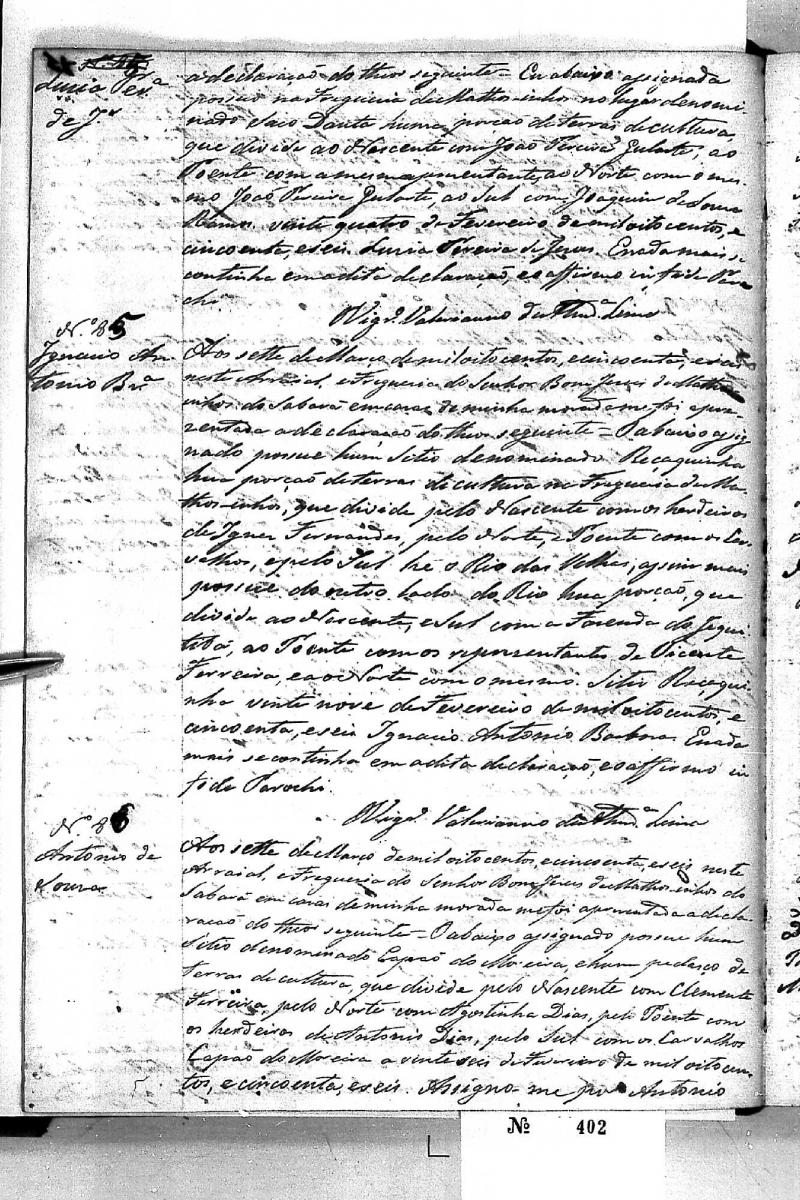 Luzia Per.ª
de J.s
a declaração do theor seguinte = Eu abaixo assignada
possuo na Freguezia de Mathosinhos no lugar denomi-
nado Saco Danta huma porção de terras de cultura,
que divide ao Nascente com João Pereira Gularte, ao
Poente com a mesma aprezentante, ao Norte com o mes-
mo João Pereira Gularte, ao Sul com Joaquim de Souza
Ramos, vinte quatro de Fevereiro de mil oito centos, e
cincoenta, e seis. Luzia Pereira de Jesus. E nada mais se
continha em a dita declaração, e o affirmo in fide Paro-
chi.
O Vigr.º Valerianno de Lima
N.º 85
Ignacio An-
tonio Br.ª
Aos sette de Março de mil oito centos, e cincoenta, e seis
neste Arraial, e Freguezia do Senhor Bom Jesus de Matho-
sinhos do Sabará em cazas de minha morada me foi apre-
zentada a declaração do theor seguinte = O abaixo assig-
nado possue hum Sitio denominado Rocaquinha
hua porção de terras de cultura na Freguezia de Ma-
thosinhos, que divide pelo Nascente com os herdeiros
de Ignez Fernandes, pelo Norte, e Poente com os Car-
valhos, e pelo Sul hé o Rio das Velhas, assim mais
possue do outro lado do Rio hua porção, que
divide ao Nascente, e Sul com a Fazenda do Jequi-
tibá, ao Poente com os reprezentantes de Vicente
Ferreira, e ao Norte com o mesmo. Sitio Rocaqui-
nha vinte nove de Fevereiro de mil oito centos, e
cincoenta, e seis Ignacio Antonio Barboza. E nada
mais se continha em a dita declaração, e o affirmo in
fide Parochi.
O Vigr.º Valerianno de Lima
N.º 86
Antonio de
Souza
Aos sette de Março de mil oito centos, e cincoenta, e seis neste
Arraial, e Freguezia do Senhor Bom Jesus de Mathosinhos do
Sabará em cazas de minha morada me foi aprezentada a decla-
ração do theor seguinte = O abaixo assignado possue hum
Sitio denominado Capão do Moreira, e hum pedaço de
terras de cultura, que divide pelo Nascente com Clemente
Ferreira, pelo Norte com Agostinha Dias, pelo Poente com
os herdeiros de Antonio Dias, pelo Sul com os Carvalhos
Capão do Moreira a vinte seis de Fevereiro de mil oito cen-
tos, e cincoenta, e seis. Assigno-me por Antonio
Nº 402